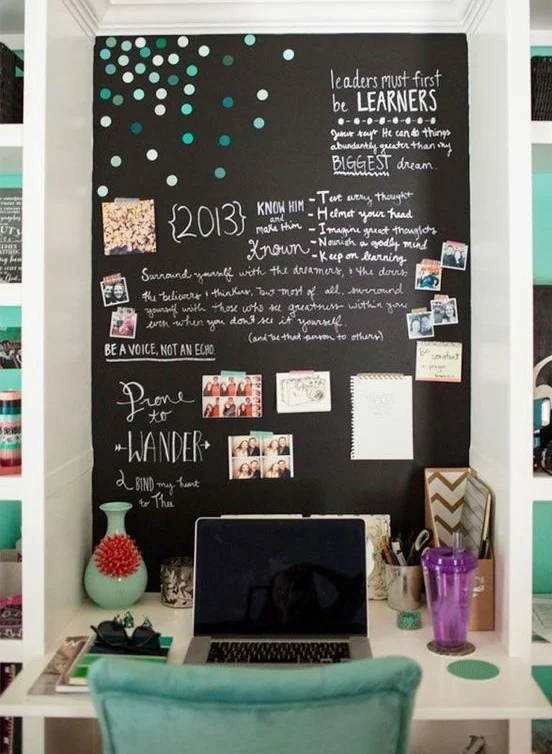 leaders must first
be LEARNERS
Jesus says He can do things
abundantly greater than my
BIGGEST dream.
{2013}
KNOW HIM
and
make Him
Known
- Test every thought
- Helmet your head
- Imagine great thoughts
- Nourish a godly mind
- Keep on learning
Surround yourself with the dreamers, & the doers,
the believers & thinkers, but most of all, surround
yourself with those who see greatness within you
even when you don't see it yourself.
(and be that person to others)
BE A VOICE, NOT AN ECHO.
Be constant
in prayer
Prone
to
WANDER
BIND my heart
to Thee